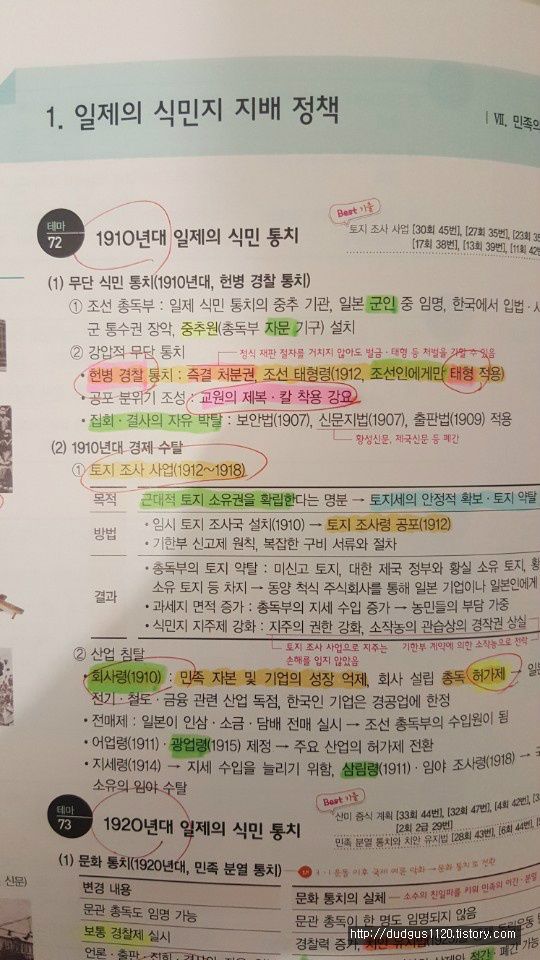 1. 일제의 식민지 지배 정책
Ⅶ. 민족의
테마
72
1910년대 일제의 식민 통치
Best 기출
토지 조사 사업 [30회 45번], [27회 35번], [23회 35
[17회 38번], [13회 39번], [11회 42번
(1) 무단 식민 통치(1910년대, 헌병 경찰 통치)
① 조선 총독부 : 일제 식민 통치의 중추 기관, 일본 군인 중 임명, 한국에서 입법·사
군 통수권 장악, 중추원(총독부 자문 기구) 설치
② 강압적 무단 통치
정식 재판 절차를 거치지 않아도 벌금·태형 등 처벌을 가할 수 있음
• 헌병 경찰 통치 : 즉결 처분권, 조선 태형령(1912, 조선인에게만 태형 적용)
• 공포 분위기 조성 : 교원의 제복·칼 착용 강요
• 집회·결사의 자유 박탈 : 보안법(1907), 신문지법(1907), 출판법(1909) 적용
황성신문, 제국신문 등 폐간
(2) 1910년대 경제 수탈
① 토지 조사 사업(1912~1918)
목적
근대적 토지 소유권을 확립한다는 명분 → 토지세의 안정적 확보·토지 약탈
방법
• 임시 토지 조사국 설치(1910) → 토지 조사령 공포(1912)
• 기한부 신고제 원칙, 복잡한 구비 서류와 절차
결과
• 총독부의 토지 약탈 : 미신고 토지, 대한 제국 정부와 황실 소유 토지, 황
소유 토지 등 차지 → 동양 척식 주식회사를 통해 일본 기업이나 일본인에게
• 과세지 면적 증가 : 총독부의 지세 수입 증가 → 농민들의 부담 가중
• 식민지 지주제 강화 : 지주의 권한 강화, 소작농의 관습상의 경작권 상실
토지 조사 사업으로 지주는
손해를 입지 않았음
기한부 계약에 의한 소작농으로 전락
② 산업 침탈
• 회사령(1910) : 민족 자본 및 기업의 성장 억제, 회사 설립 총독 허가제 → 일
전기·철도·금융 관련 산업 독점, 한국인 기업은 경공업에 한정
• 전매제 : 일본이 인삼·소금·담배 전매 실시 → 조선 총독부의 수입원이 됨
• 어업령(1911)·광업령(1915) 제정 → 주요 산업의 허가제 전환
• 지세령(1914) → 지세 수입을 늘리기 위함, 삼림령(1911)·임야 조사령(1918) → 국
소유의 임야 수탈
테마
73
1920년대 일제의 식민 통치
Best 기출
산미 증식 계획 [33회 44번], [32회 47번], [4회 42번], [3
[2회 2급 29번]
민족 분열 통치와 치안 유지법 [28회 43번], [6회 44번], [5
(1) 문화 통치(1920년대, 민족 분열 통치)
3·1 운동 이후 국제 여론 악화 → 문화 통치로 전환
변경 내용
문화 통치의 실체
소수의 친일파를 키워 민족의 이간·분열
문관 총독도 임명 가능
문관 총독이 한 명도 임명되지 않음
보통 경찰제 실시
경찰력 증가, 치안 유지법(1925)
신문)
http://dudgus1120.tistory.com